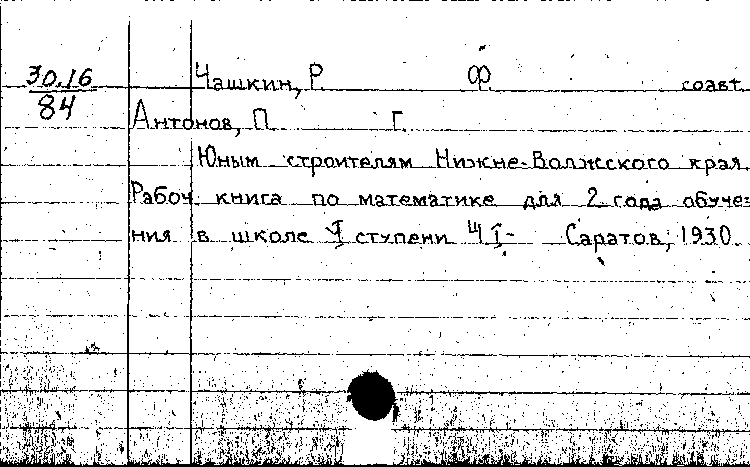 30.16 Чашкин, Р. Ф. соавт.
84 Антонов, П. Г.
Юным строителям Нижне-Волжского края.
Рабоч. книга по математике для 2 года обуче=
ния в школе I ступени Ч I- Саратов, 1930.